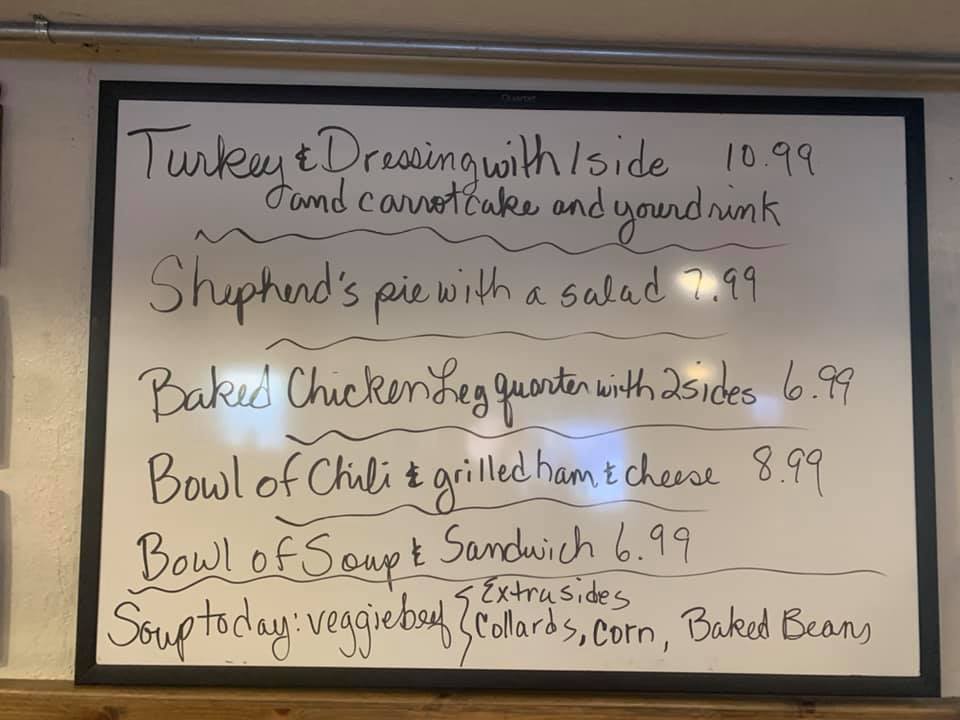 Quartet
Turkey & Dressing with 1 side 10.99
and carrot cake and your drink
Shepherd's pie with a salad 7.99
Baked Chicken Leg quarter with 2 sides 6.99
Bowl of Chili & grilled ham & cheese 8.99
Bowl of Soup & Sandwich 6.99
Soup today: veggie beef { Extra sides
Collards, corn, Baked Beans